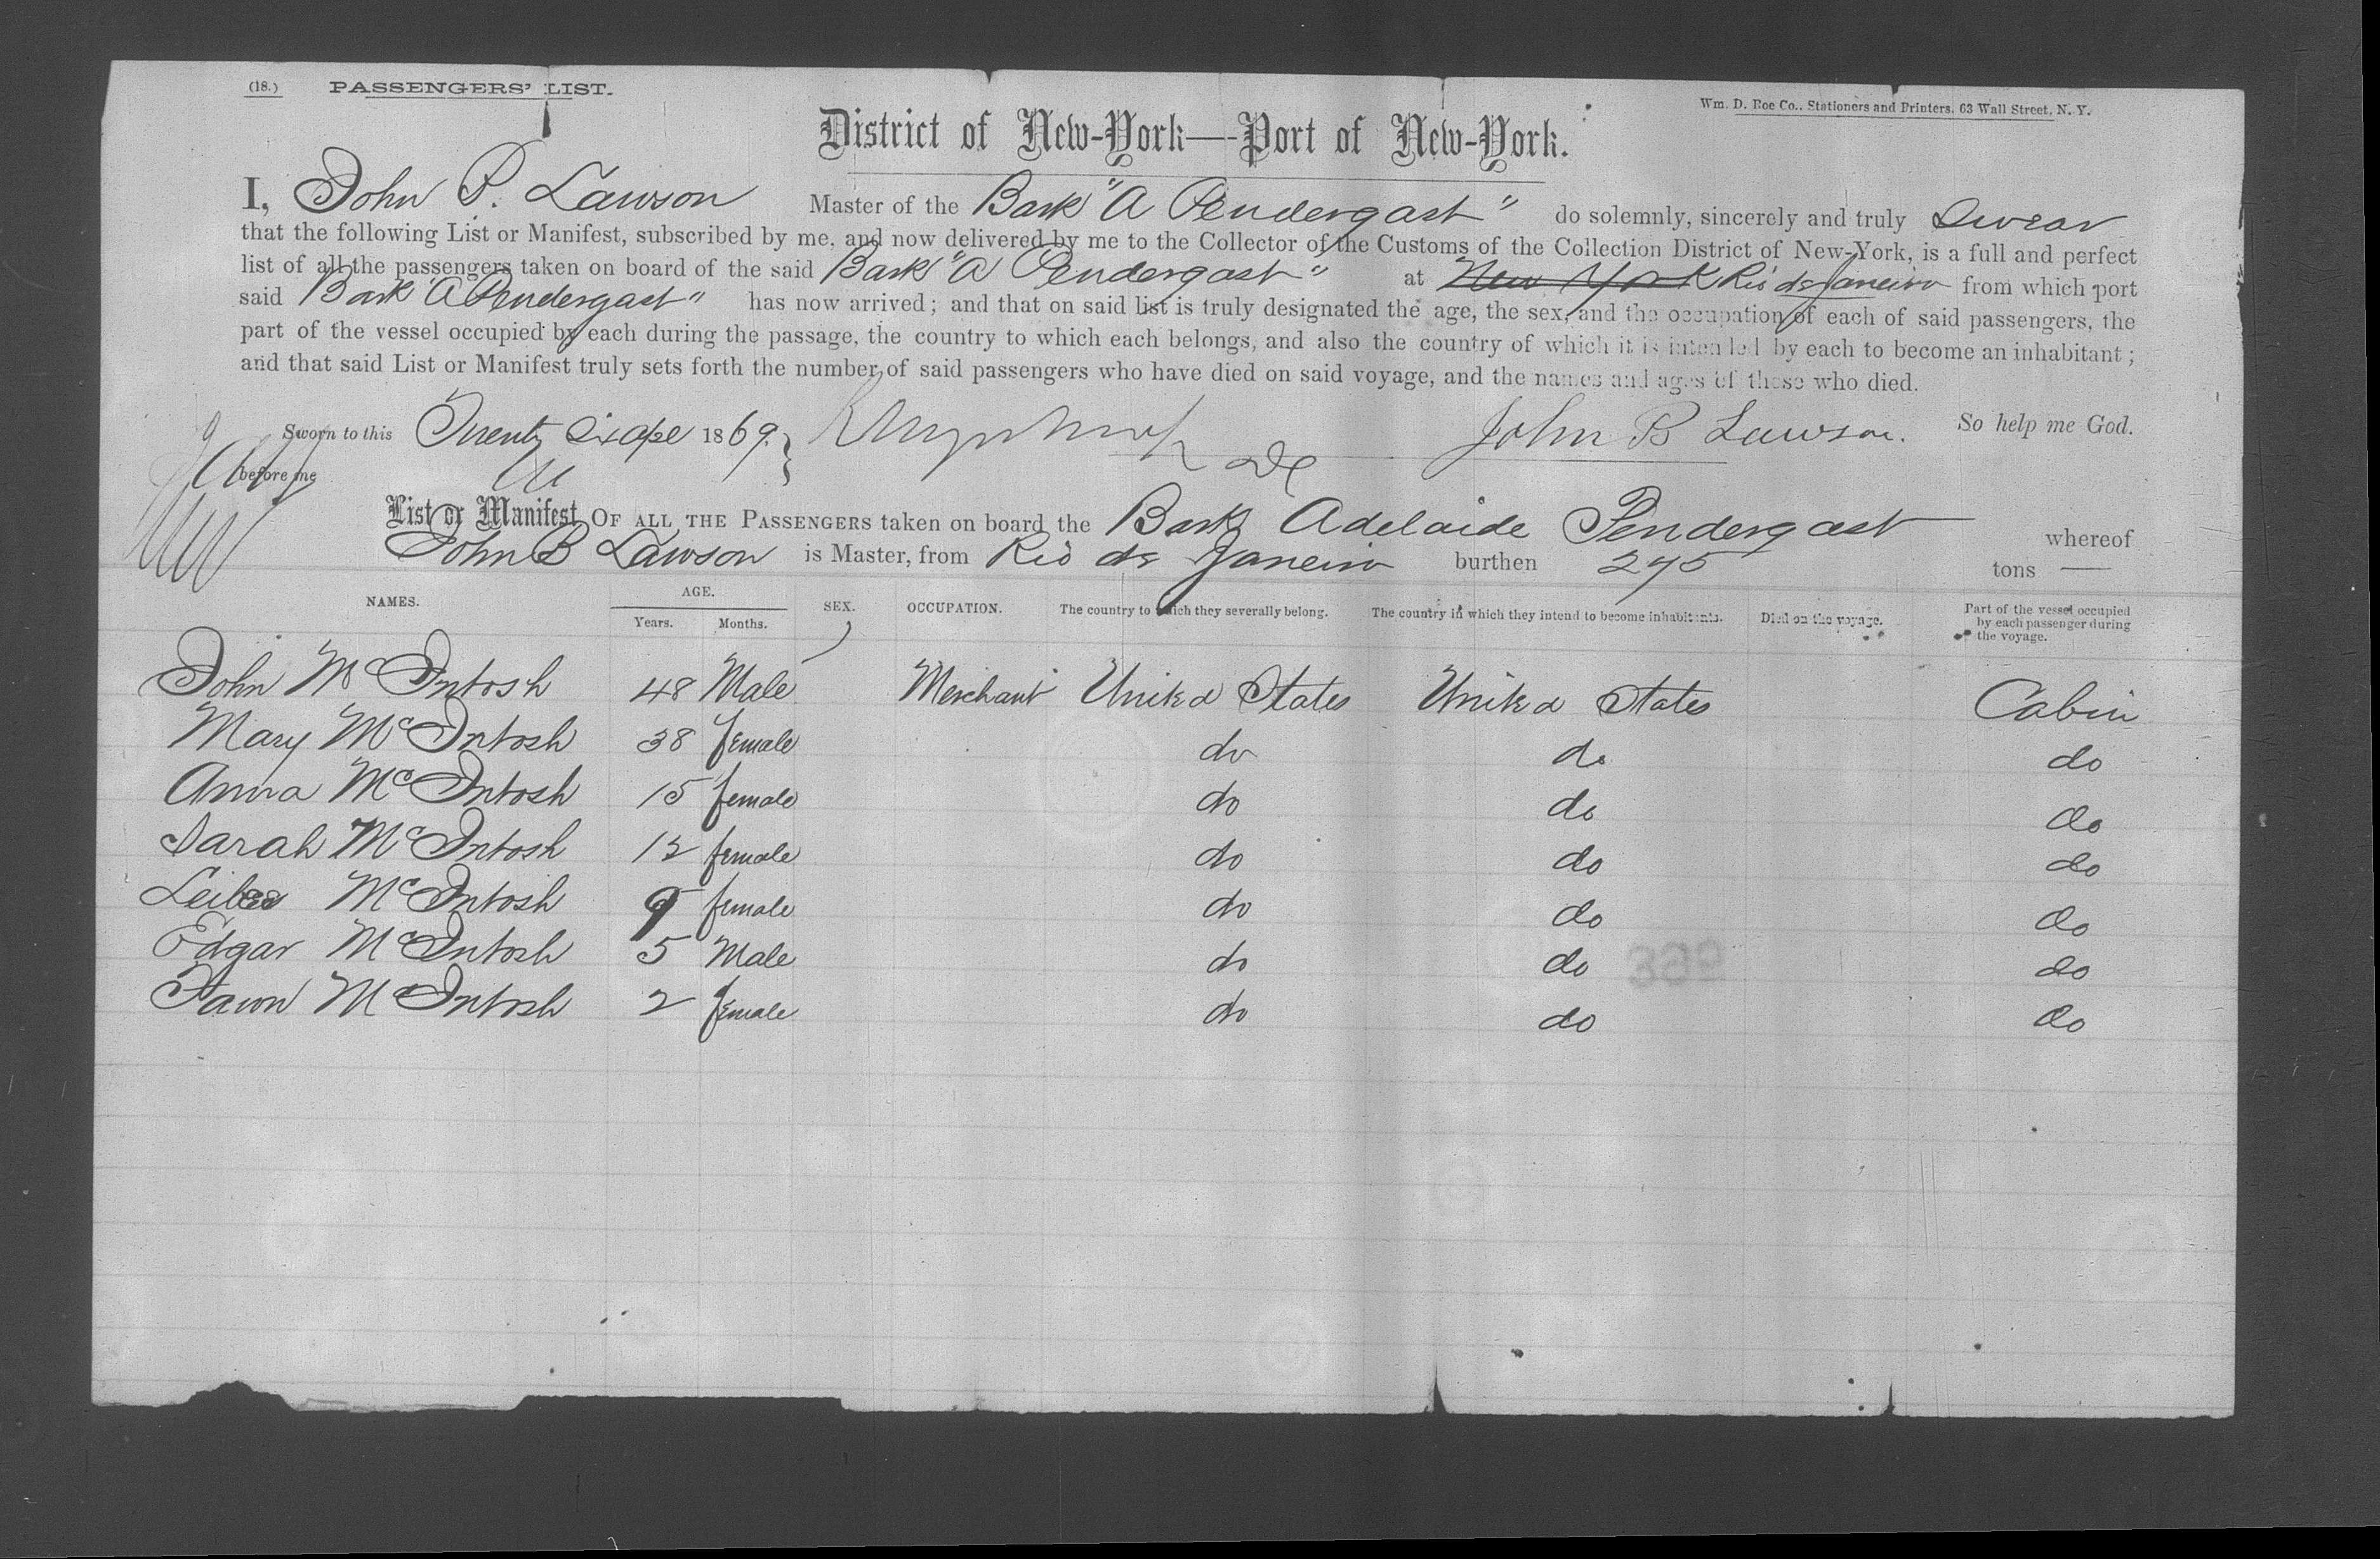 (18.) PASSENGERS' LIST.
Wm. D. Roe Co., Stationers and Printers, 63 Wall Street, N. Y.
District of New-York—Port of New-York.
I, John P. Lawson Master of the Bark "A Pendergast" do solemnly, sincerely and truly Swear
that the following List or Manifest, subscribed by me, and now delivered by me to the Collector of the Customs of the Collection District of New-York, is a full and perfect
list of all the passengers taken on board of the said Bark "A Pendergast" at New York Rio de Janeiro from which port
said Bark "A Pendergast" has now arrived; and that on said list is truly designated the age, the sex, and the occupation of each of said passengers, the
part of the vessel occupied by each during the passage, the country to which each belongs, and also the country of which it is intended by each to become an inhabitant;
and that said List or Manifest truly sets forth the number of said passengers who have died on said voyage, and the names and ages of those who died.
Sworn to this Twenty Six 1869. John B Lawson. So help me God.
before me
List or Manifest OF ALL THE PASSENGERS taken on board the Bark Adelaide Pendergast whereof
John B Lawson is Master, from Rio de Janeiro burthen 245 tons
NAMES. AGE. Years. Months. SEX. OCCUPATION. The country to which they severally belong. The country in which they intend to become inhabitants. Died on the voyage. Part of the vessel occupied by each passenger during the voyage.
John McIntosh 48 Male Merchant United States United States Cabin
Mary McIntosh 38 female do do do
Anna McIntosh 15 female do do do
Sarah McIntosh 12 female do do do
McIntosh 9 female do do do
Edgar McIntosh 5 Male do do do
McIntosh 2 female do do do